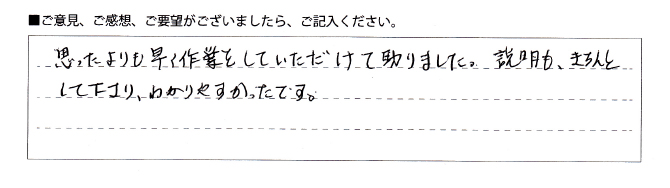 ■ご意見、ご感想、ご要望がございましたら、ご記入ください。
思ったよりも早く作業をしていただけて助りました。説明も、きちんと
して下さり、わかりやすかったです。